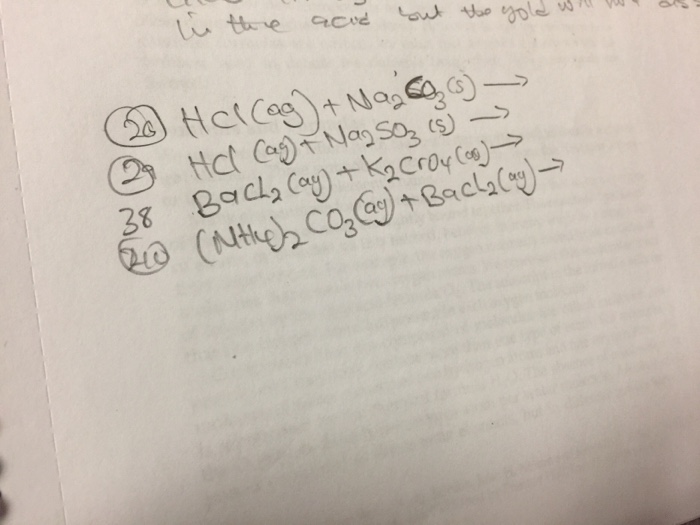 in the acid but the gold will not
(26) HCl(aq) + Na2CO3(s) →
(29) HCl (aq) + Na2SO3 (s) →
38 BaCl2(aq) + K2CrO4(aq) →
(40) (NH4)2 CO3(aq) + BaCl2(aq) →